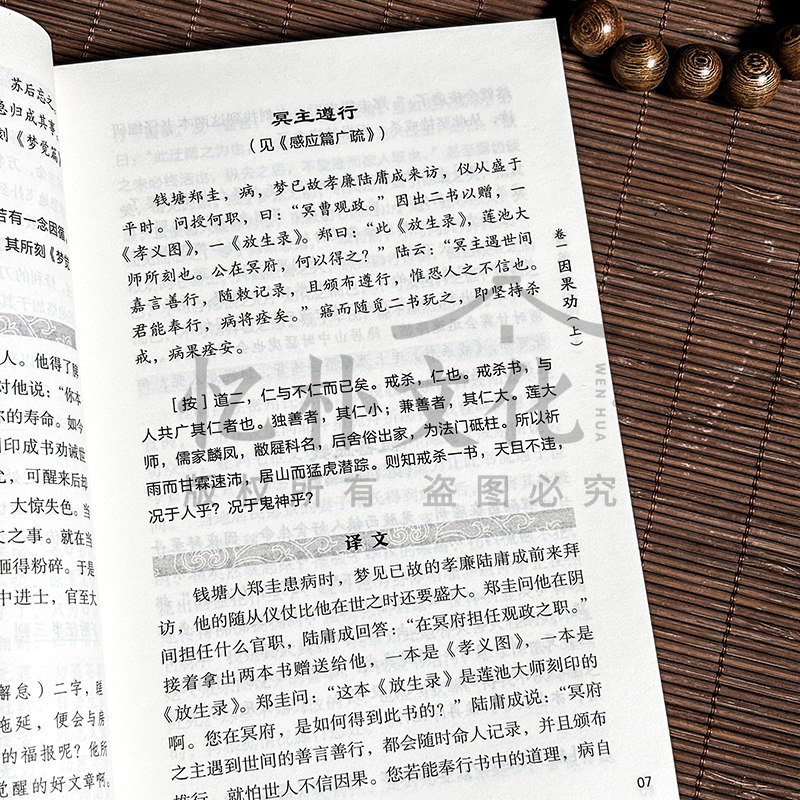 苏后忘之
急归成其事
刻《梦觉篇》
若有一念因循
其所刻《梦觉
人。他得了脾
对他说：“你本
你的寿命。如今
刻印成书劝诫世
允，可醒来后却
大惊失色。当
文之事。就在当
砸得粉碎。于是
中进士，官至大
解怠）二字，
拖延，便会与
的福报呢？他所
觉醒的好文章啊。
冥主遵行
（见《感应篇广疏》）
钱塘郑圭，病，梦已故孝廉陆庸成来访，仪从盛于
平时。问授何职，曰：“冥曹观政。”因出二书以赠，一
《孝义图》，一《放生录》。郑曰：“此《放生录》，莲池大
师所刻也。公在冥府，何以得之？”陆云：“冥主遇世间
嘉言善行，随敕记录，且颁布遵行，惟恐人之不信也。
君能奉行，病将痊矣。”寤而随觅二书玩之，即坚持杀
戒，病果痊安。
［按］道二，仁与不仁而已矣。戒杀，仁也。戒杀书，与
人共广其仁者也。独善者，其仁小；兼善者，其仁大。莲大
师，儒家麟凤，敝屣科名，后舍俗出家，为法门砥柱。所以祈
雨而甘霖速沛，居山而猛虎潜踪。则知戒杀一书，天且不违，
况于人乎？况于鬼神乎？
译文
钱塘人郑圭患病时，梦见已故的孝廉陆庸成前来拜
访，他的随从仪仗比他在世之时还要盛大。郑圭问他在阴
间担任什么官职，陆庸成回答：“在冥府担任观政之职。”
接着拿出两本书赠送给他，一本是《孝义图》，一本是
《放生录》。郑圭问：“这本《放生录》是莲池大师刻印的
啊。您在冥府，是如何得到此书的？”陆庸成说：“冥府
之主遇到世间的善言善行，都会随时命人记录，并且颁布
推行，就怕世人不信因果。您若能奉行书中的道理，病自
卷一 因果劝（上）
07
忆朴文化
WEN HUA
版权所有 盗图必究